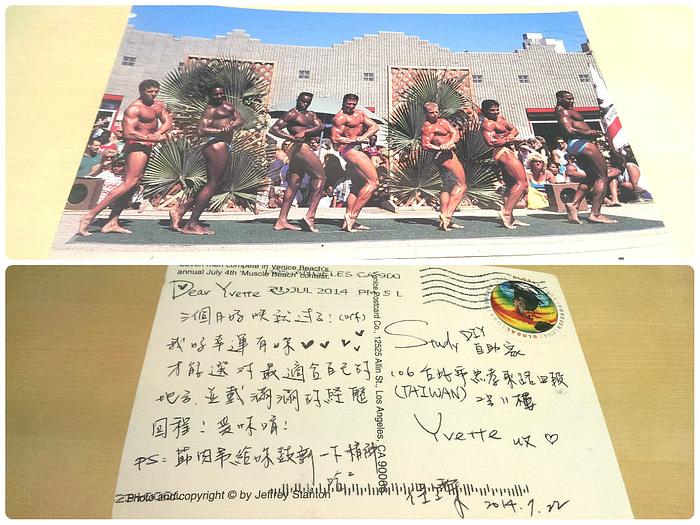 Seven men compete in Venice Beach's
annual July 4th 'Muscle Beach' contest.
LOS ANGELES CA 900
24 JUL 2014 PM 5 L
Dear Yvette
三個月好快就過了！
我好幸運有妳
才能選對最適合自己的
地方，並戴滿滿的經驗
回程！愛妳唷！
PS：
給妳鼓勵一下
Venice Postcard Co., 12525 Allin St., Los Angeles, CA 90066
Photo and copyright © by Jeffrey Stanton
GLOBAL
FOREVER
Study DIY
自助家
106 台北市忠孝東路四段
(TAIWAN)
樓
Yvette
2014.7.22